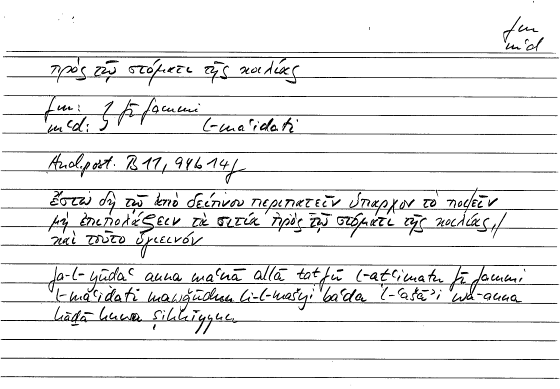 fm
mʿd
πρὸς τῷ στόματι τῆς κοιλίας
fm: } fī fammi
mʿd: l-maʿidati
An.post. B 11, 94b14f
ἔστω δὴ τῷ ἀπὸ δείπνου περιπατεῖν ὑπάρχον τὸ ποιεῖν
μὴ ἐπιπολάζειν τὰ σιτία πρὸς τῷ στόματι τῆς κοιλίας,/
καὶ τοῦτο ὑγιεινόν
fa-l-yūḍaʿ anna maʿnā allā taṭfū l-aṭʿimatu fī fammi
l-māʿidati mawǧūdun li-l-mašyi baʿda l-ʿašāʾi wa-anna
hāḏā huwa ṣiḥḥiyyun